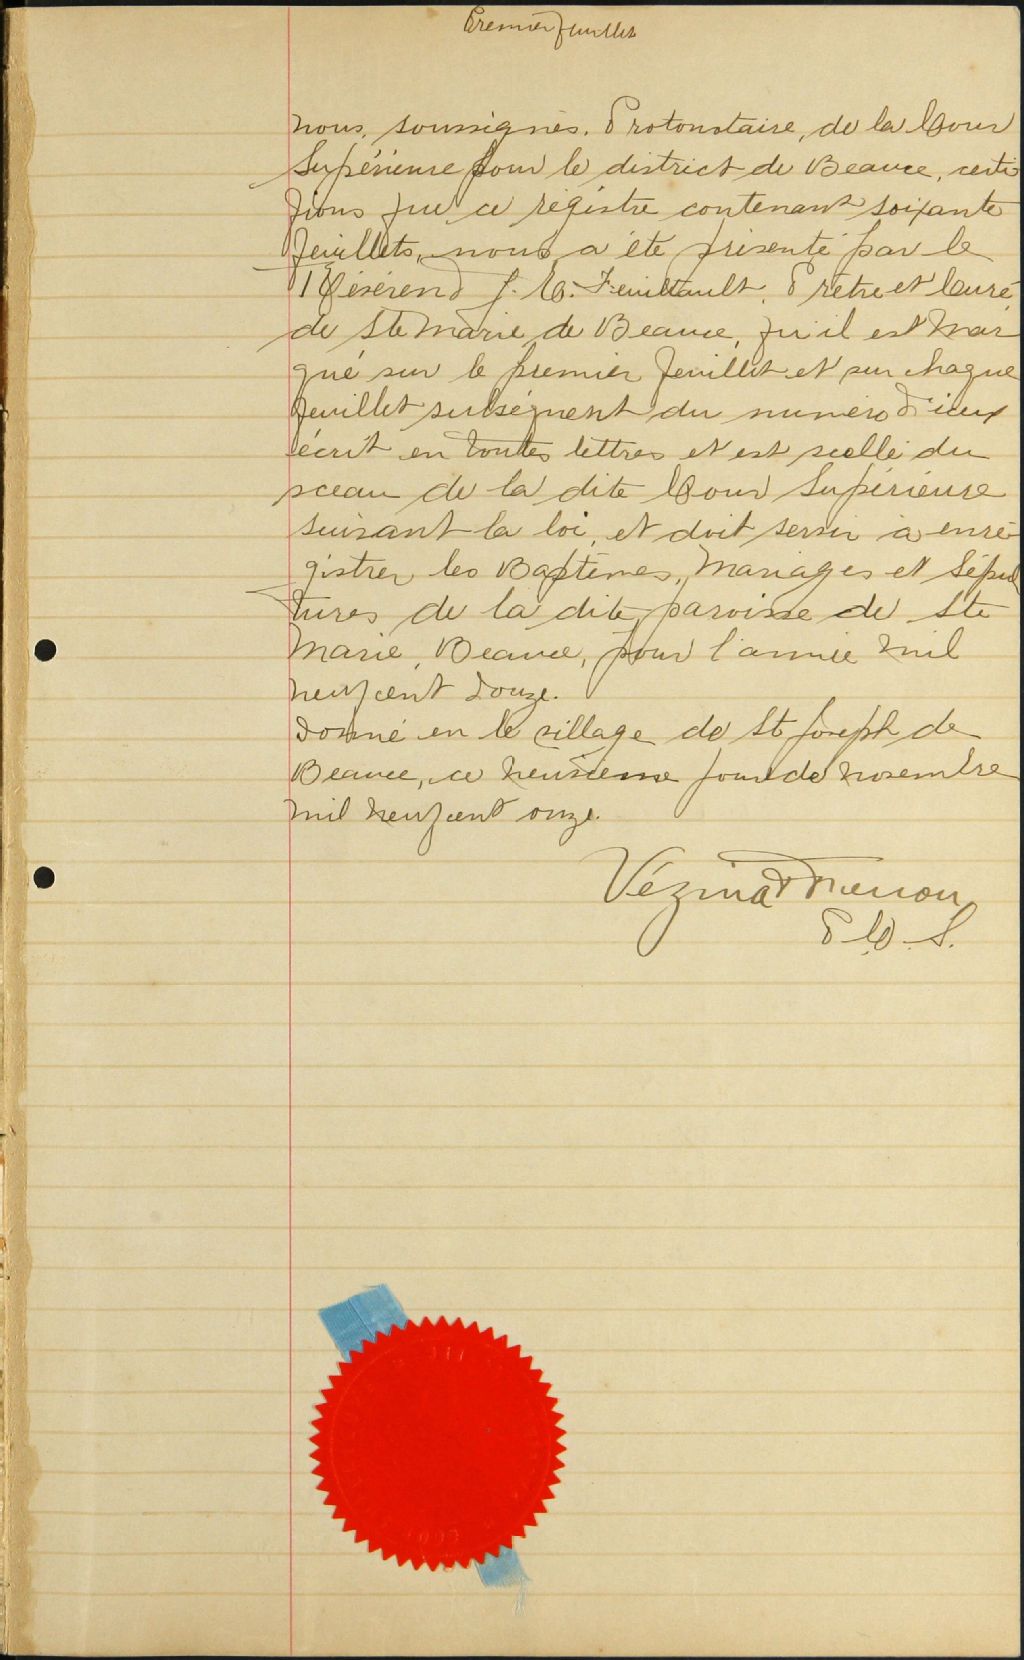 Premier feuillet
Nous, soussignés, Protonotaire, de la Cour
Supérieure pour le district de Beauce, certi
fions que ce régistre contenant soixante
feuillets, nous a été présenté par le
Révérend J. E. Feuiltault, Prêtre et Curé
de Ste Marie de Beauce, qu'il est mar
qué sur le premier feuillet et sur chaque
feuillet subséquent du numéro d'iceux
écrit en toutes lettres et est scellé du
sceau de la dite Cour Supérieure
suivant la loi, et doit servir à enre
gistrer les Baptêmes, Mariages et Sépul
tures de la dite paroisse de Ste
Marie, Beauce, pour l'année mil
neuf cent douze.
Donné en le village de St Joseph de
Beauce, ce neuvième jour de novembre
mil neuf cent onze.
Vézina &
P C. S.